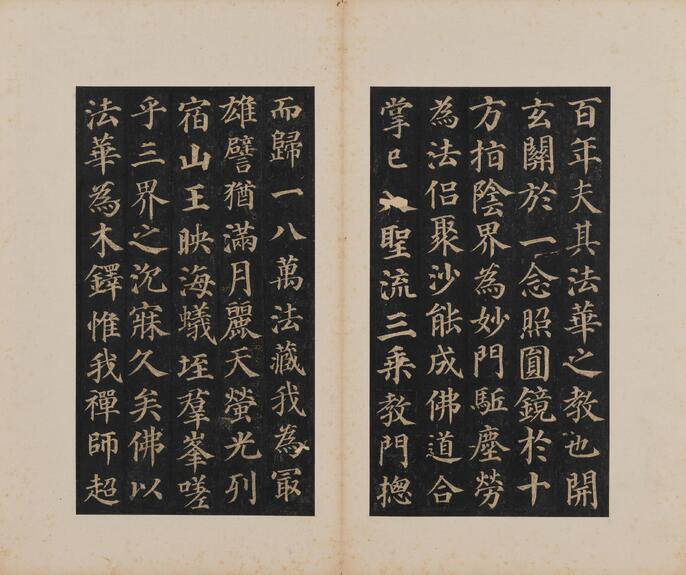 百年夫其法華之教也開
玄關於一念照圓鏡於十
方指陰界為妙門駈塵勞
為法侶聚沙能成佛道合
掌已入聖流三乘教門揔
而歸一八萬法藏我為冣
雄譬猶滿月麗天螢光列
宿山王映海蟻垤羣峯嗟
乎三界之沉寐久矣佛以
法華為木鐸惟我禪師超